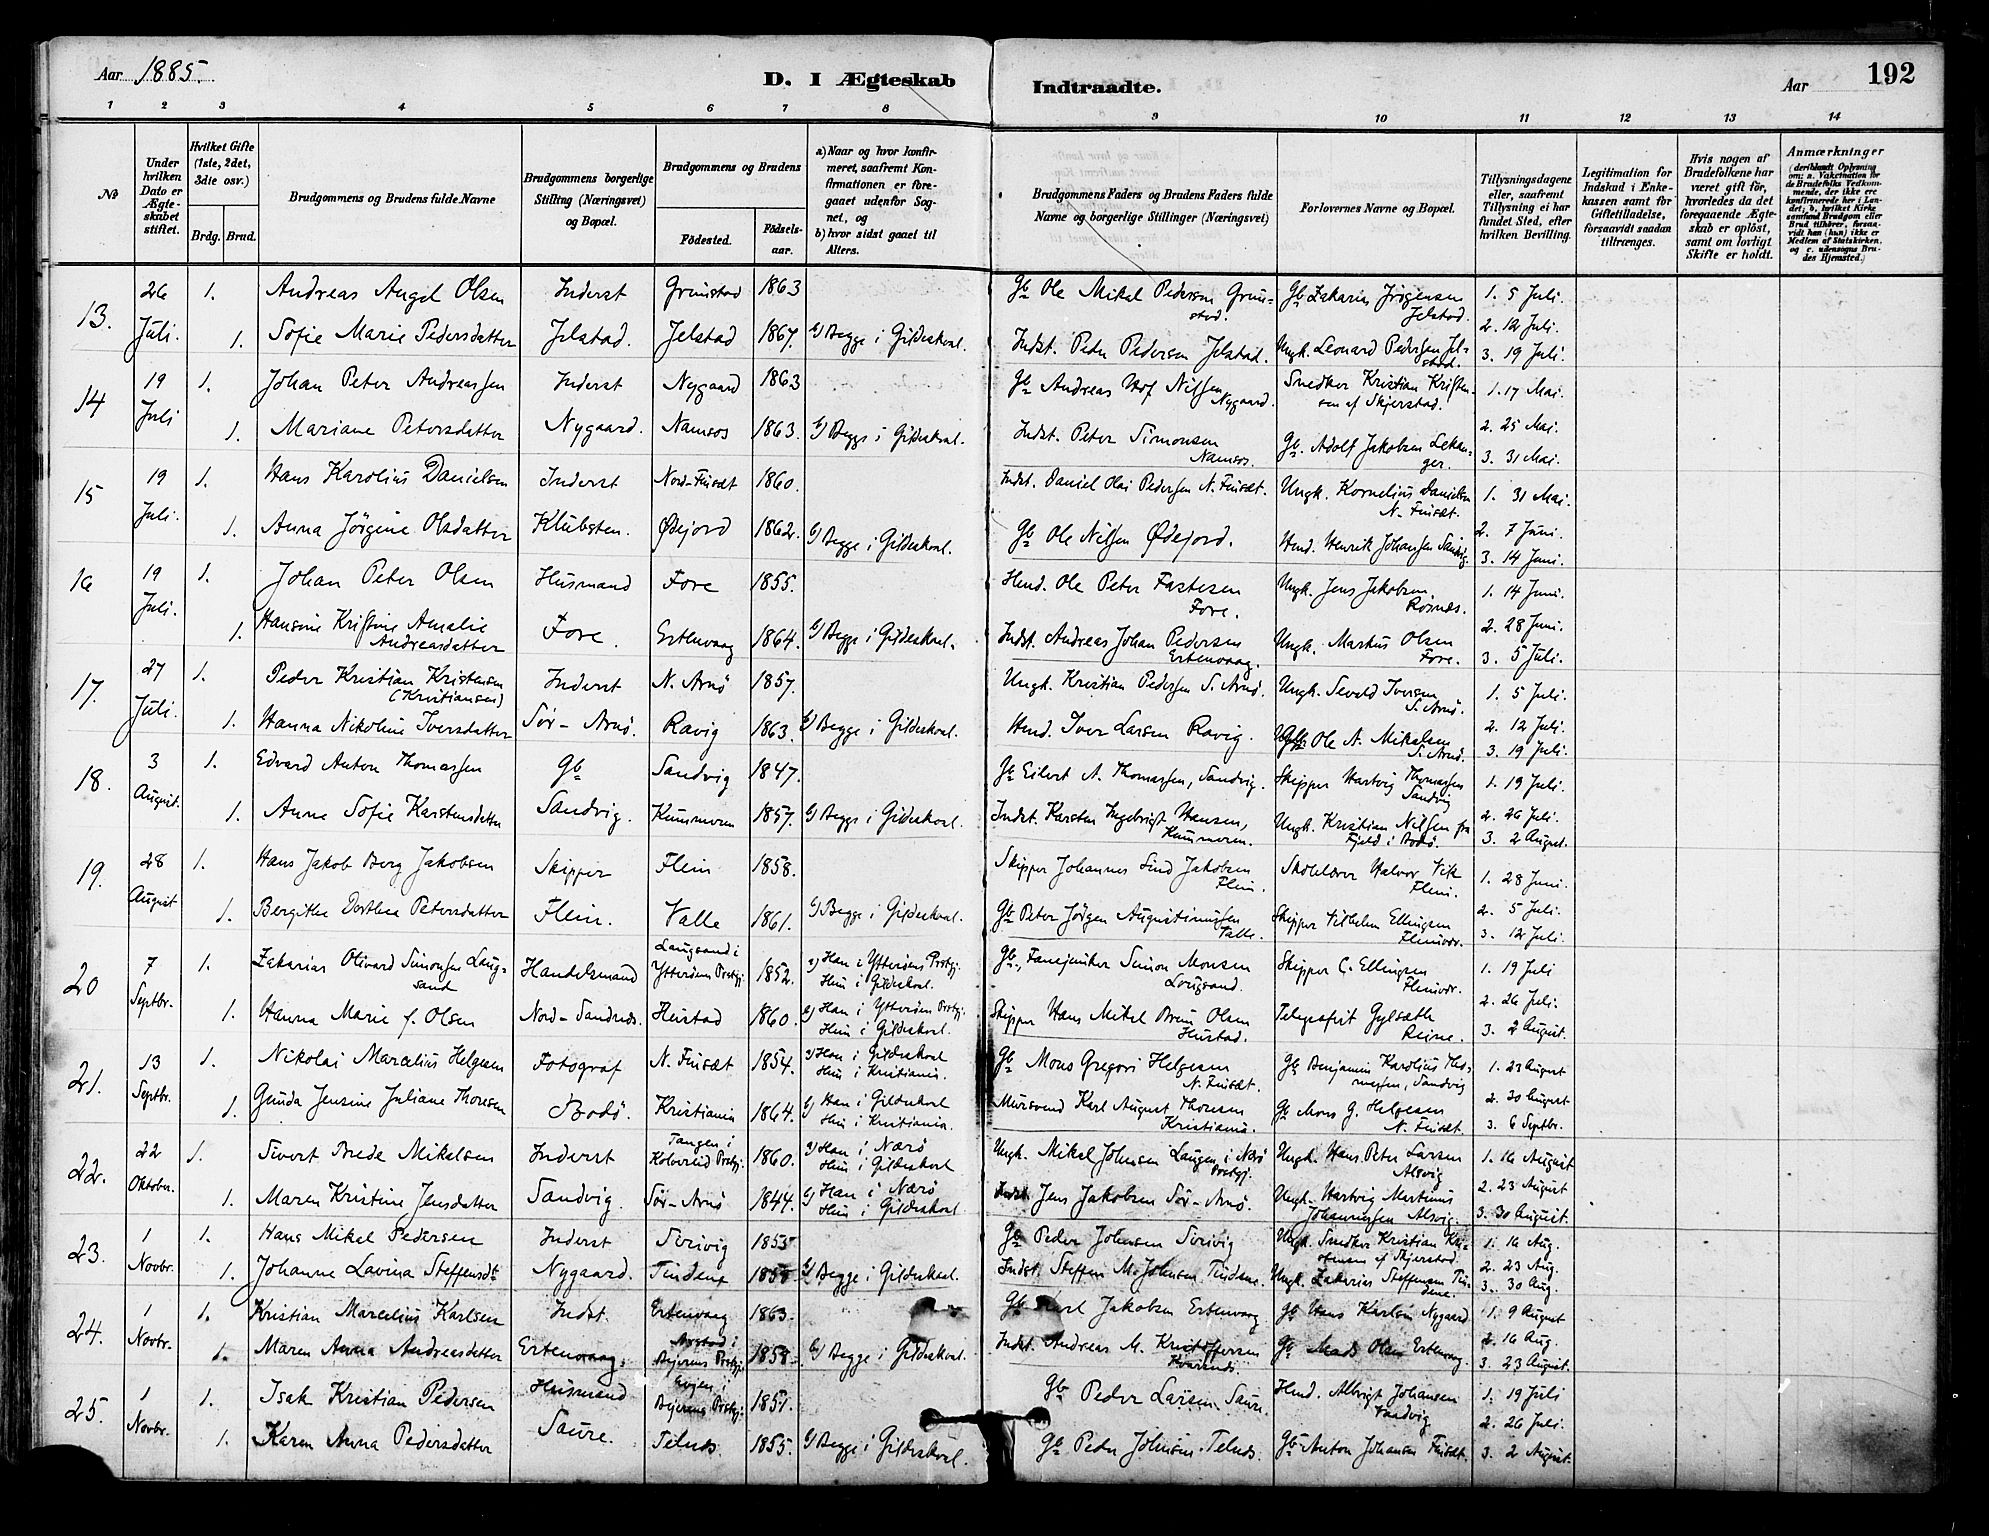 Aar 1885.
D. I Ægteskab Indtraadte.
Aar
192
1 2 3 4 5 6 7 8 9 10 11 12 13 14
№
Under hvilken Dato er Ægteskabet stiftet.
Hvilket Gifte (1ste, 2det, 3die osv.)
Brdg. Brud.
Brudgommens og Brudens fulde Navne
Brudgommens borgerlige Stilling (Næringsvei) og Bopæl.
Brudgommens og Brudens
Födested.
Födselsaar.
a) Naar og hvor konfirmeret, saafremt Konfirmationen er foregaaet udenfor Sognet, og
b) hvor sidst gaaet til Alters.
Brudgommens Faders og Brudens Faders fulde Navne og borgerlige Stillinger (Næringsvei)
Forlovernes Navne og Bopæl.
Tillysningsdagene eller, saafremt Tillysning ei har fundet Sted, efter hvilken Bevilling.
Legitimation for Indskud i Enkekassen samt for Giftetilladelse, forsaavidt saadan tiltrænges.
Hvis nogen af Brudefolkene har været gift för, hvorledes da det foregaaende Ægteskab er oplöst, samt om lovligt Skifte er holdt.
Anmærkninger (deriblandt Oplysning om: a. Vaksination for de Brudefolks Vedkommende, der ikke ere konfirmerede her i Landet; b. hvilket Kirkesamfund Brudgom eller Brud tilhörer, forsaavidt han (hun) ikke er Medlem af Statskirken, og c. udensogns Brudes Hjemsted.)
13. 26 Juli. 1. Andreas Angel Olsen Inderst Grimstad 1863 Gb Ole Mikal Pedersen Grimstad. Gb Zakarias Jörgensen Jelstad. 1. 5 Juli.
2. 12 Juli.
1. Sofie Marie Pedersdatter Jelstad. Jelstad 1867. b) Begge i Gildeskaal. Indst. Peder Pedersen Jelstad. Ungk. Leonard Pedersen Jelstad. 3. 19 Juli.
14 19 Juli 1. Johan Peter Andreassen Inderst Nygaard 1863 Gb Andreas Hof Nilsen Nygaard. Snedker Kristian Kristensen af Skjerstad. 1. 17 Mai.
2. 25 Mai.
1. Mariane Petersdatter Nygaard. Namsos 1863. b) Begge i Gildeskaal. Indst. Peter Simonsen Namsos. Gb. Adolf Jakobsen Lekanger. 3. 31 Mai.
15 19 Juli. 1. Hans Karolius Danielsen Inderst Nord-Finsæt 1860. Indst. Daniel Olai Pedersen N. Finsæt. Ungk. Kornelius Danielsen N. Finsæt. 1. 31 Mai.
2. 7 Juni.
1. Anna Jörgine Olsdatter Klubsten. Ødejord 1862. b) Begge i Gildeskaal. Gb Ole Nilsen Ødejord. Hmd. Henrik Johansen Sandvig. 3. 14 Juni.
16 19 Juli. 1. Johan Peter Olsen Husmand Fore 1855. Hmd. Ole Peter Fastesen Fore. Ungk. Jens Jakobsen Rosnæs. 1. 14 Juni.
2. 28 Juni.
1. Hansine Kristine Amalie Andreasdatter Fore. Ertenvaag 1864. b) Begge i Gildeskaal. Indst. Andreas Johan Pedersen Ertenvaag. Ungk. Markus Olsen Fore. 3. 5 Juli.
17. 27 Juli. 1. Peder Kristian Kristensen (Kristiansen) Inderst N. Arnö 1857. Ungk. Kristian Pedersen S. Arnö. Ungk. Sevald Iversen S. Arnö. 1. 5 Juli.
2. 12 Juli.
1. Hanna Nikoline Iversdatter Sör-Arnö. Ravig 1863. b) Begge i Gildeskaal. Hmd. Iver Larsen Ravig. Ole N. Mikalsen S. Arnö. 3. 19 Juli.
18. 3 August. 1. Edvard Anton Thomassen Gb Sandvig 1847. Gb Eilert A. Thomassen, Sandvig. Skipper Hartvig Thomassen Sandvig 1. 19 Juli.
2. 26 Juli.
1. Anne Sofie Karstensdatter Sandvig. Kunmoren 1857. b) Begge i Gildeskaal. Indst. Karsten Ingebrigt Hansen, Kunmoren. Ungk. Kristian Nilsen fra Fjeld i Bodö. 3. 2 August.
19. 28 August 1. Hans Jakob Berg Jakobsen Skipper Flein 1858. Skipper Johannes Lind Jakobsen Flein. Skolelærer Halvor Vik Flein. 1. 28 Juni.
2. 5 Juli.
1. Bergithe Dorthea Petersdatter Flein. Valle 1861. b) Begge i Gildeskaal. Gb Peter Jörgen Augustinussen Valle. Skipper Vilhelm Ellingsen Fleinvær. 3. 12 Juli.
20 7 Septbr. 1. Zakarias Olivard Simonsen Langsand Handelsmand Langsand i Ytterøens Prstgj. 1852. a) Han i Ytterøens Prstgj. Hun i Gildeskaal. Gb., Fanejunker Simon Monsen Langsand. Skipper C. Ellingsen Fleinvær. 1. 19 Juli
2. 26 Juli.
1. Hanna Marie f. Olsen Nord-Sandnæs. Hustad 1860. b) Han i Ytterøens Prstgj. Hun i Gildeskaal. Skipper Hans Mikel Breum Olsen Hustad. Telegrafist Gylseth Reine. 3. 2 August.
21. 13 Septbr. 1. Nikolai Marcelius Helgesen Fotograf N. Finsæt 1854. a) Han i Gildeskaal Hun i Kristiania. Gb Mons Gregori Helgesen N. Finsæt. Gb Benjamin Karolius Thomassen, Sandvig 1. 23 August
2. 30 August
1. Gunda Jensine Juliane Thoresen Bodö. Kristiania 1864. b) Han i Gildeskaal Hun i Kristiania. Mursvend Karl August Thoresen Kristiania. Gb Mons G. Helgesen N. Finsæt. 3. 6 Septbr.
22. 22 Oktober. 1. Sivert Brede Mikalsen Inderst Tangen i Kolvereid Prstgj. 1860. a) Han i Nærö Hun i Gildeskaal Ungk. Mikal Johnsen Laugen i Nærö Prstgj. Ungk. Hans Peter Larsen Alsvig 1. 16 August
2. 23 August
1. Maren Kristine Jensdatter Sandvig. Sör-Arnö 1844. b) Han i Nærö Hun i Gildeskaal Indst. Jens Jakobsen Sör-Arnö. Ungk. Hartvig Martinus Johannessen Alsvig. 3. 30 August.
23. 1 Novbr. 1. Hans Mikal Pedersen Inderst Sørivig 1853 Gb Peder Johnsen Sørivig Ungk. Snedker Kristian Kristensen af Skjerstad. 1. 16 Aug.
2. 23 Aug.
1. Johanne Lavina Steffensdt Nygaard. Tindene b) Begge i Gildeskaal. Indst. Steffen M. Johnsen Tindene. Ungk. Zakarias Steffensen Tindene. 3. 30 Aug.
24. 1 Novbr. 1. Kristian Marcelius Karlsen Indst. Ertenvaag 1863. Gb Karl Jakobsen Ertenvaag Gb Hans Karlsen Nygaard 1. 9 August
2. 16 Aug.
1. Maren Anna Andreasdatter Ertenvaag. Arstad i Beierens Prstgj. 1858. b) Begge i Gildeskaal. Indst. Andreas M. Kristoffersen Gb Mads Olsen Ertenvaag. 3. 23 August.
25. 1 Novbr. 1. Isak Kristian Pedersen Husmand i Beierens Prstgj. 1851. Gb Peder Larsen Saure. Hmd. Albrigt Johansen Sandvig 1. 19 Juli
2. 26 Juli.
1. Karen Anna Pedersdatter Saure. Telnæs 1855. b) Begge i Gildeskaal. Gb Peder Johnsen Telnæs. Gb Anton Johansen Finsæt. 3. 2 August.